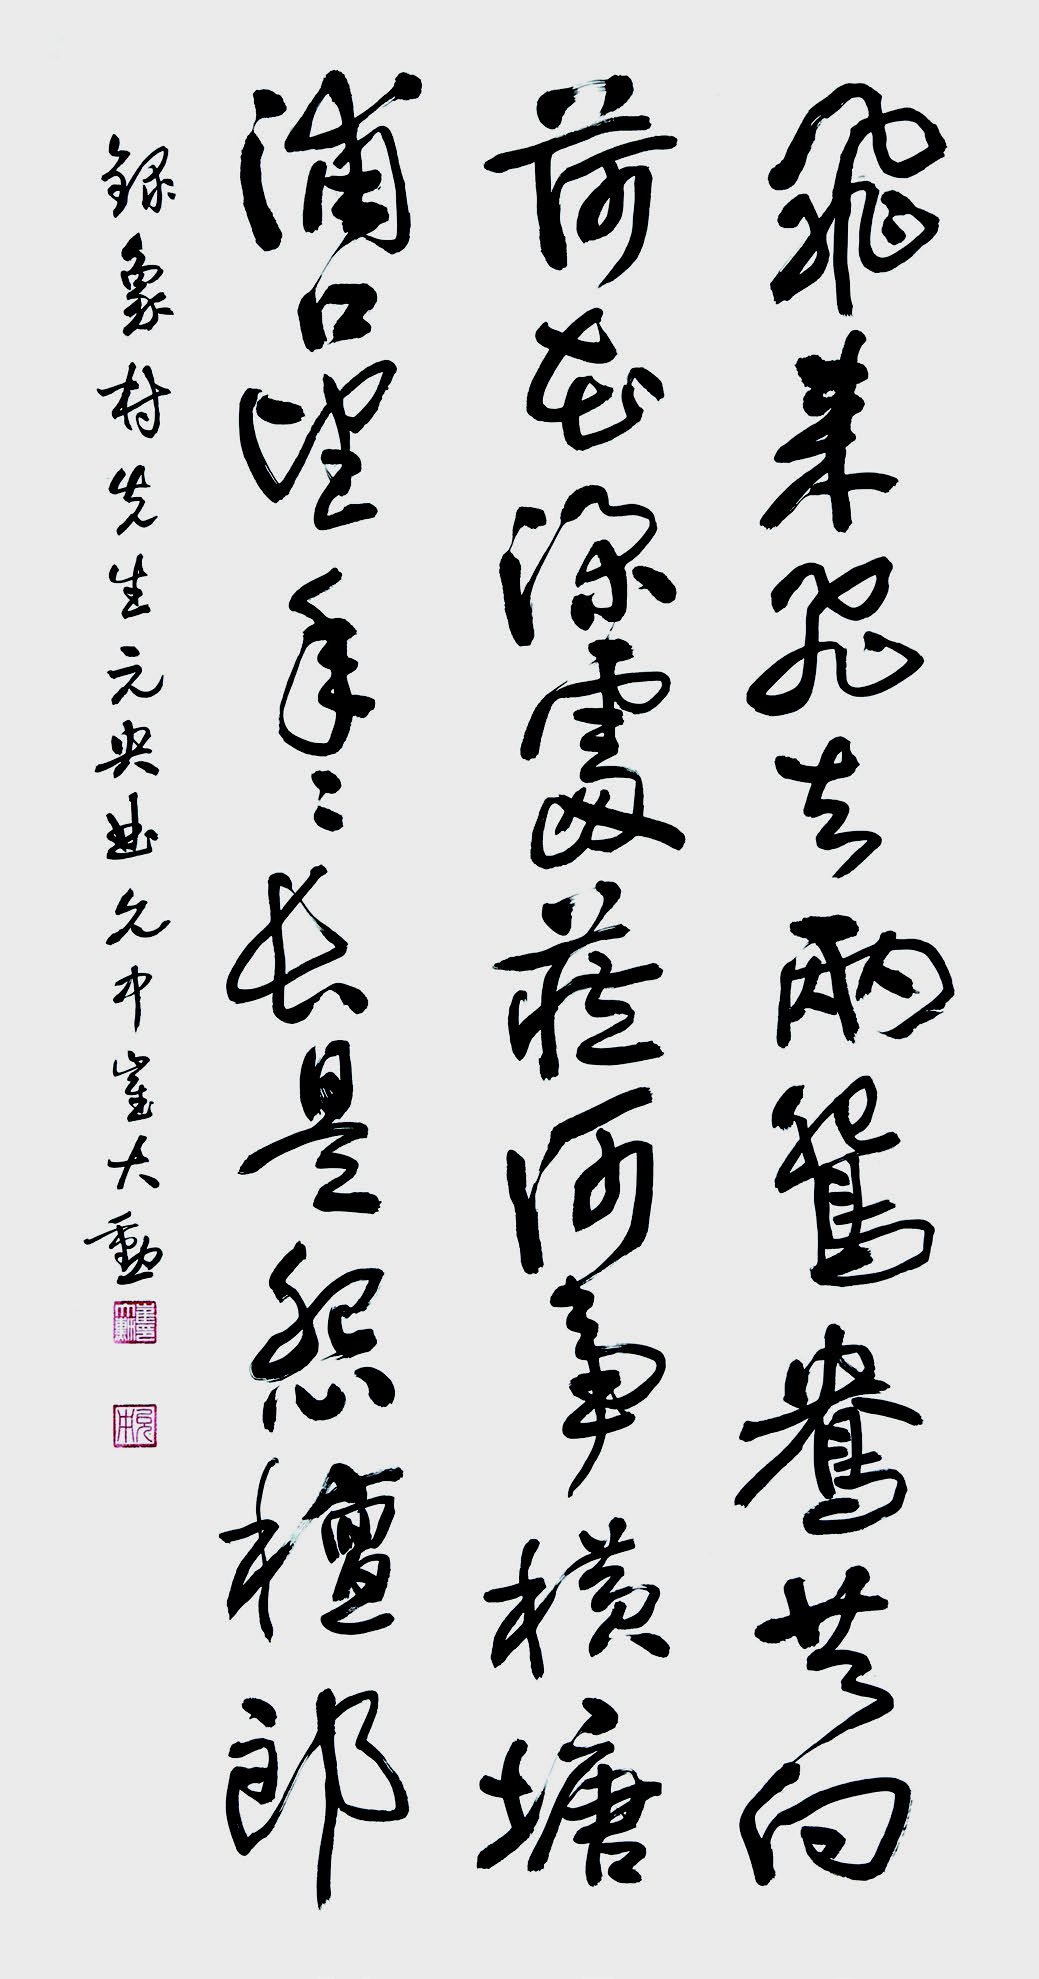 飛来飛去兩鴛鴦共向
荷花深處藏何事橫塘
浦口望年々長是怨檀郎
錄象村先生元央曲允中崔大勳